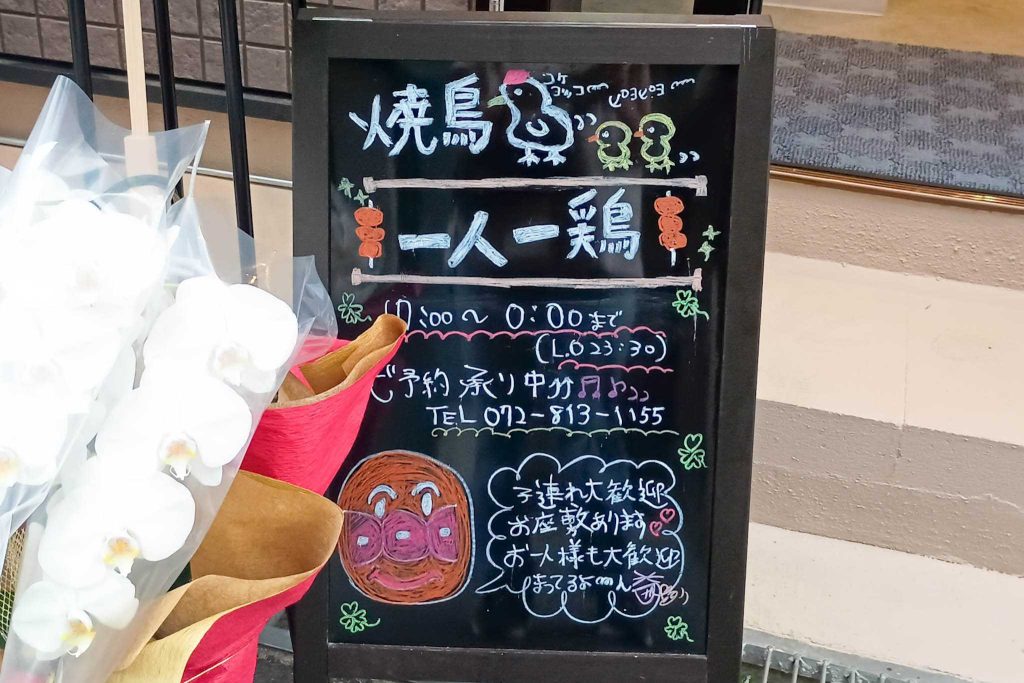 焼鳥
コケコッコー
ピヨピヨ
一人一鶏
17:00〜0:00まで
(L.O 23:30)
ご予約承り中!!
TEL 072-813-1155
子連れ大歓迎
お座敷あります
お一人様も大歓迎
まってるよーん